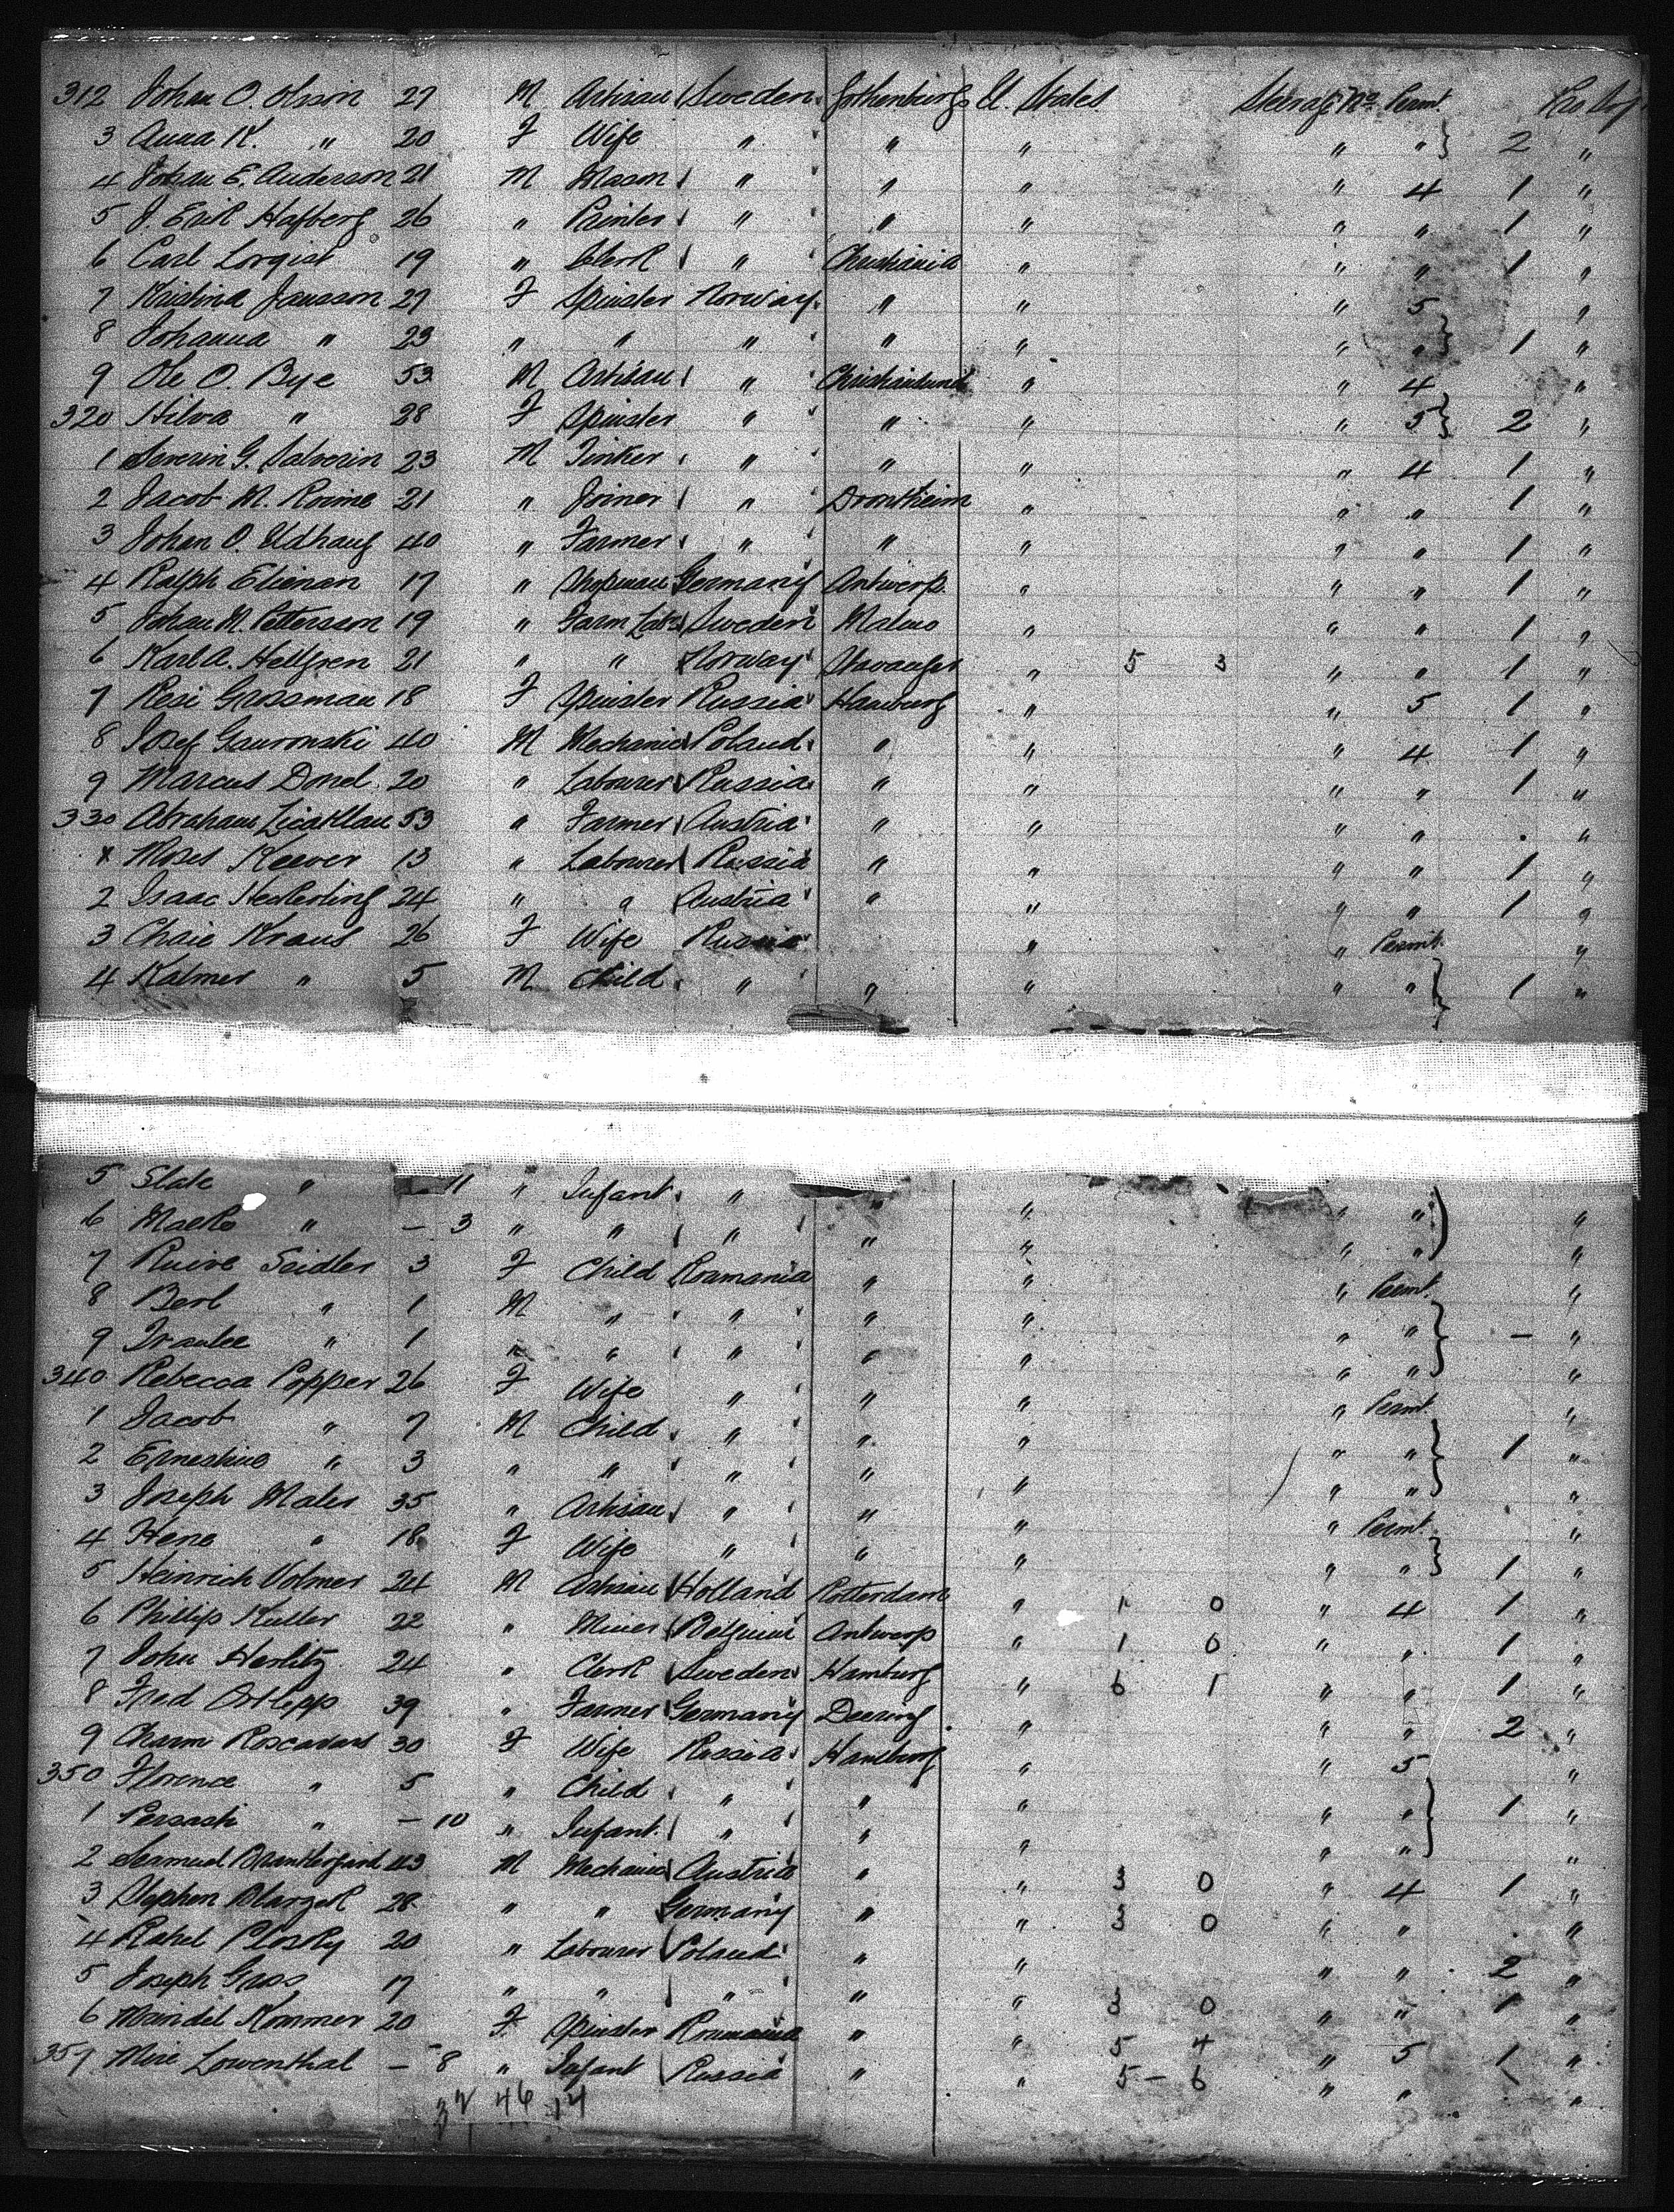 312 Johan O. Olsson 27 M Artisan Sweden Gothenburg U. States Steerage No Permt.
3 Anna K. " 20 F Wife " " " " " } 2 "
4 Johan E. Anderson 21 M Mason " " " " 4 1 "
5 J. Erik Hafberg 26 " Printer " " " " " 1 "
6 Carl Lorqist 19 " Clerk " Christiania " " " 1 "
7 Kristina Jansson 27 F Spinster Norway " " " 5 "
8 Johanna " 23 " " " " " " " } 1 "
9 Ole O. Bye 53 M Artisan " Christiansund " " 4 "
320 Hilva " 28 F Spinster " " " " 5 } 2 "
1 Severin G. Salverin 23 M Tinker " " " " 4 1 "
2 Jacob M. Roime 21 " Joiner " Drontheim " " " 1 "
3 Johan O. Eldhaug 40 " Farmer " " " " " 1 "
4 Ralph Elienan 17 " Shopman Germany Antwerp. " " " 1 "
5 Johan M. Pettersson 19 " Farm Labr Sweden Malmo " " " 1 "
6 Karl A. Hellgren 21 " " Norway Stavanger " 5 3 " " 1 "
7 Resi Grossman 18 F Spinster Russia Hamburg " " 5 1 "
8 Josef Gauronski 40 M Mechanic Poland " " " 4 1 "
9 Marcus Dond 20 " Labourer Russia " " " " 1 "
330 Abraham 53 " Farmer Austria " " " " . "
x Moses Keever 13 " Labourer Russia " " " " 1 "
2 Isaac Heckerling 24 " " Austria " " " " 1 "
3 Chaie Kraus 26 F Wife Russia " " Permt. "
4 Kalmer " 5 M Child " " " " " } 1 "
5 Slate " 11 " Infant " " " " " "
6 " — 3 " " " " " " " } "
7 Ruive Seidler 3 F Child Roumania " " " Permt. "
8 Berl " 1 M " " " " " " "
9 " 1 " " " " " " " } — "
340 Rebecca Popper 26 F Wife " " " " Permt. "
1 Jacob " 7 M Child " " " " " } 1 "
2 Ernestine " 3 " " " " " " " "
3 Joseph Maler 35 " Artisan " " " " Permt. "
4 Hene " 18 F Wife " " " " " } 1 "
5 Heinrich Volmer 24 M Artisan Holland Rotterdam " 1 0 " 4 1 "
6 Phillip Kuller 22 " Miner Belgium Antwerp " 1 0 " " 1 "
7 John Herlitz 24 " Clerk Sweden Hamburg " 6 1 " " 1 "
8 Fred Ortlepp 39 " Farmer Germany Deering " " " 2 "
9 Charm Roscavans 30 F Wife Russia Hamburg " " 5 "
350 Florence " 5 " Child " " " " " } 1 "
1 Persash " — 10 " Infant " " " " " "
2 Samuel 43 M Mechanic Austria " " 3 0 " 4 1 "
3 Stephen Blarzek 28 " " Germany " " 3 0 " " . "
4 Rahel Plosky 20 " Labourer Poland " " " " 2 "
5 Joseph Gros 17 " " " " " 3 0 " " 1 "
6 Maindel Kommer 20 F Spinster Roumania " " 5 4 " 5 1 "
357 Mire Lowenthal — 8 " Infant Russia " " 5 — 6 " " "
32 46 14